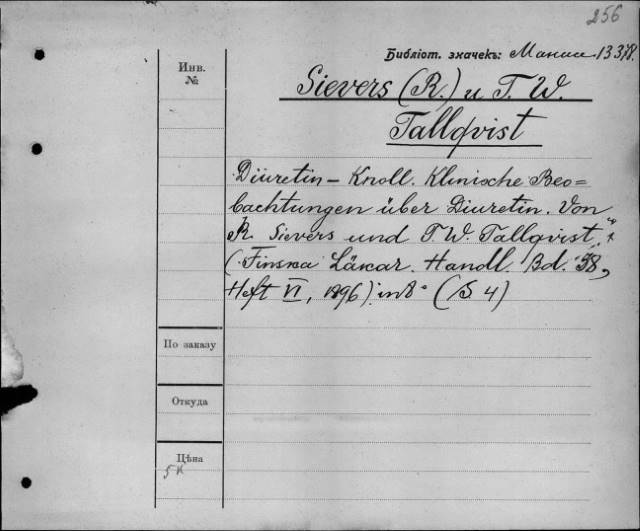 256
Библіот. значекъ: Манни 13378.
Инв.
№
Sievers (R.) u T. W.
Tallqvist
Diuretin – Knoll. Klinische Beo=
bachtungen über Diuretin. Von
R. Sievers und T. W. Tallqvist.
(Finska Läkar. Handl. Bd. 38,
Heft VI, 1896) in 8° (S. 4)
По заказу
Откуда
Цѣна
5к